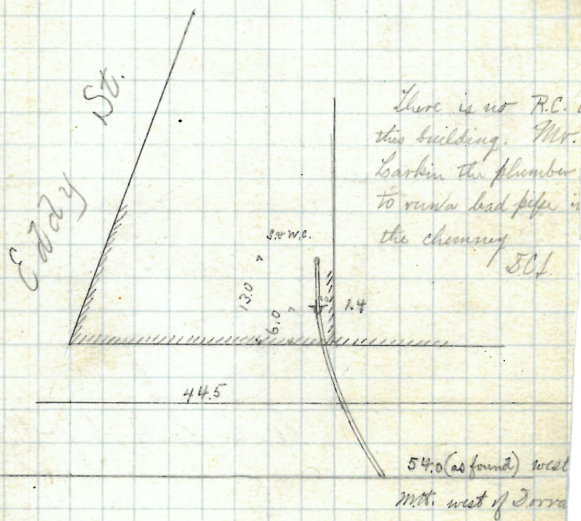 Eddy St.
There is no R.C.
this building. Mr.
Larkin the plumber
to run a bad pipe
the chimney
S & W.C.
13.0
6.0
1.4
44.5
54.0 (as found) west
M.H. west of